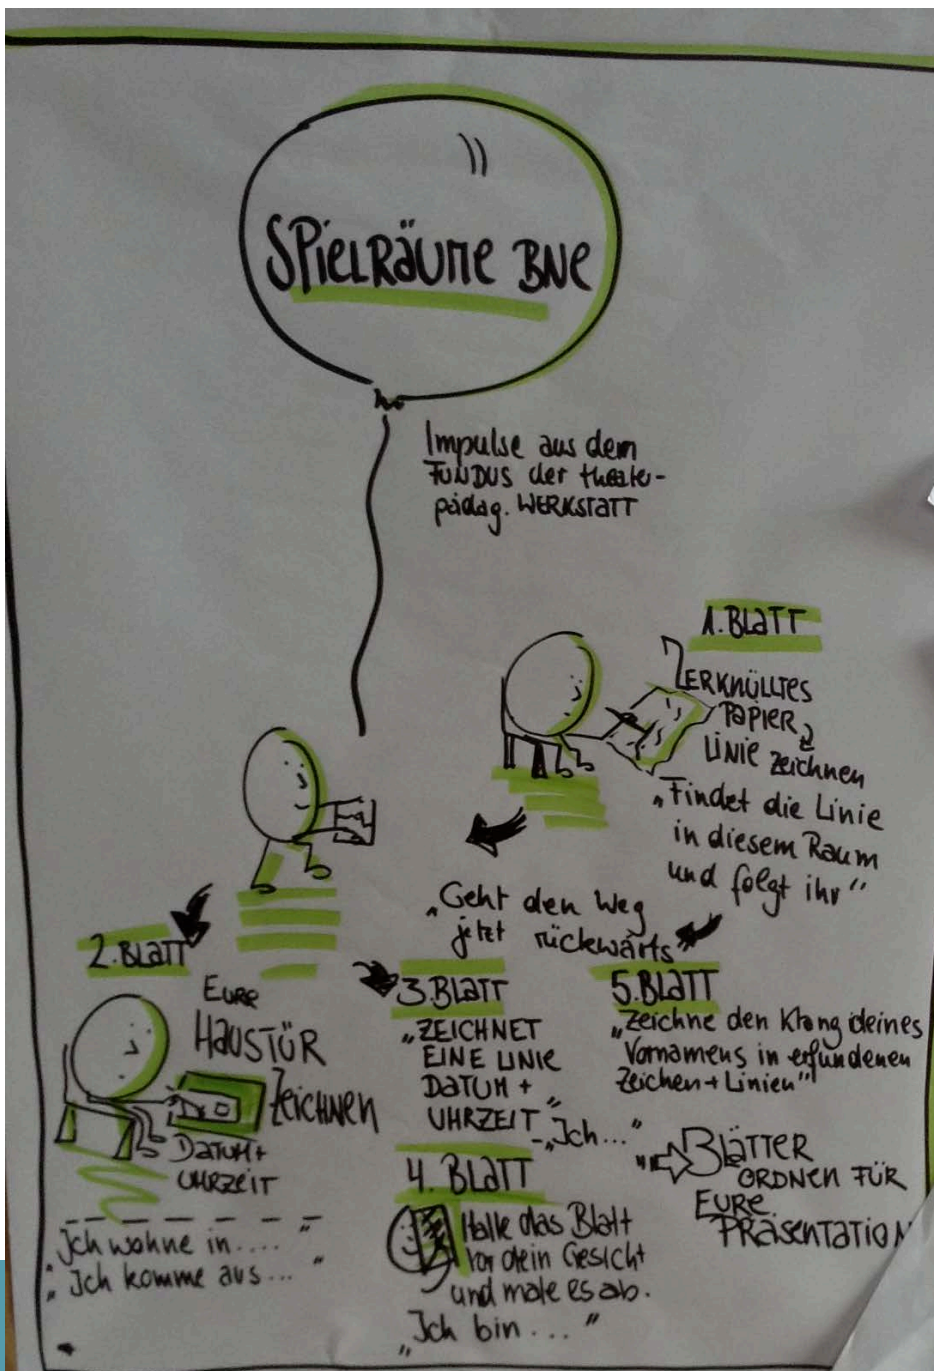 SPIELRÄUME BNE
Impulse aus dem
FUNDUS der theater-
pädag. WERKSTATT
1. BLATT
ZERKNÜLLTES
PAPIER
LINIE zeichnen
„Findet die Linie
in diesem Raum
und folgt ihr"
„Geht den Weg
jetzt rückwärts"
2. BLATT
EURE
HAUSTÜR
Zeichnen
DATUM +
UHRZEIT
„Ich wohne in .... "
„Ich komme aus ... "
3. BLATT
„ZEICHNET
EINE LINIE
DATUM +
UHRZEIT"
- „Ich..."
4. BLATT
Halte das Blatt
vor dein Gesicht
und male es ab.
„Ich bin ... "
5. BLATT
„Zeichne den Klang deines
Vornamens in erfundenen
Zeichen + Linien"
BLÄTTER
ORDNEN FÜR
EURE
PRÄSENTATION